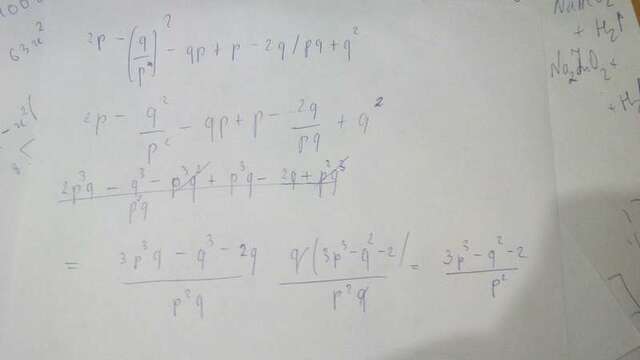 2p - (q/p)² - qp + p - 2q/pq + q²
2p - q²/p² - qp + p - 2q/pq + q²
2p³q - q³ - p³q² + p³q - 2q + p²q³ / p²q
= 3p³q - q³ - 2q / p²q q(3p³ - q² - 2) / p²q = 3p³ - q² - 2 / p²
63x²
+ H₂
Na₂ZnO₂ +
+ H